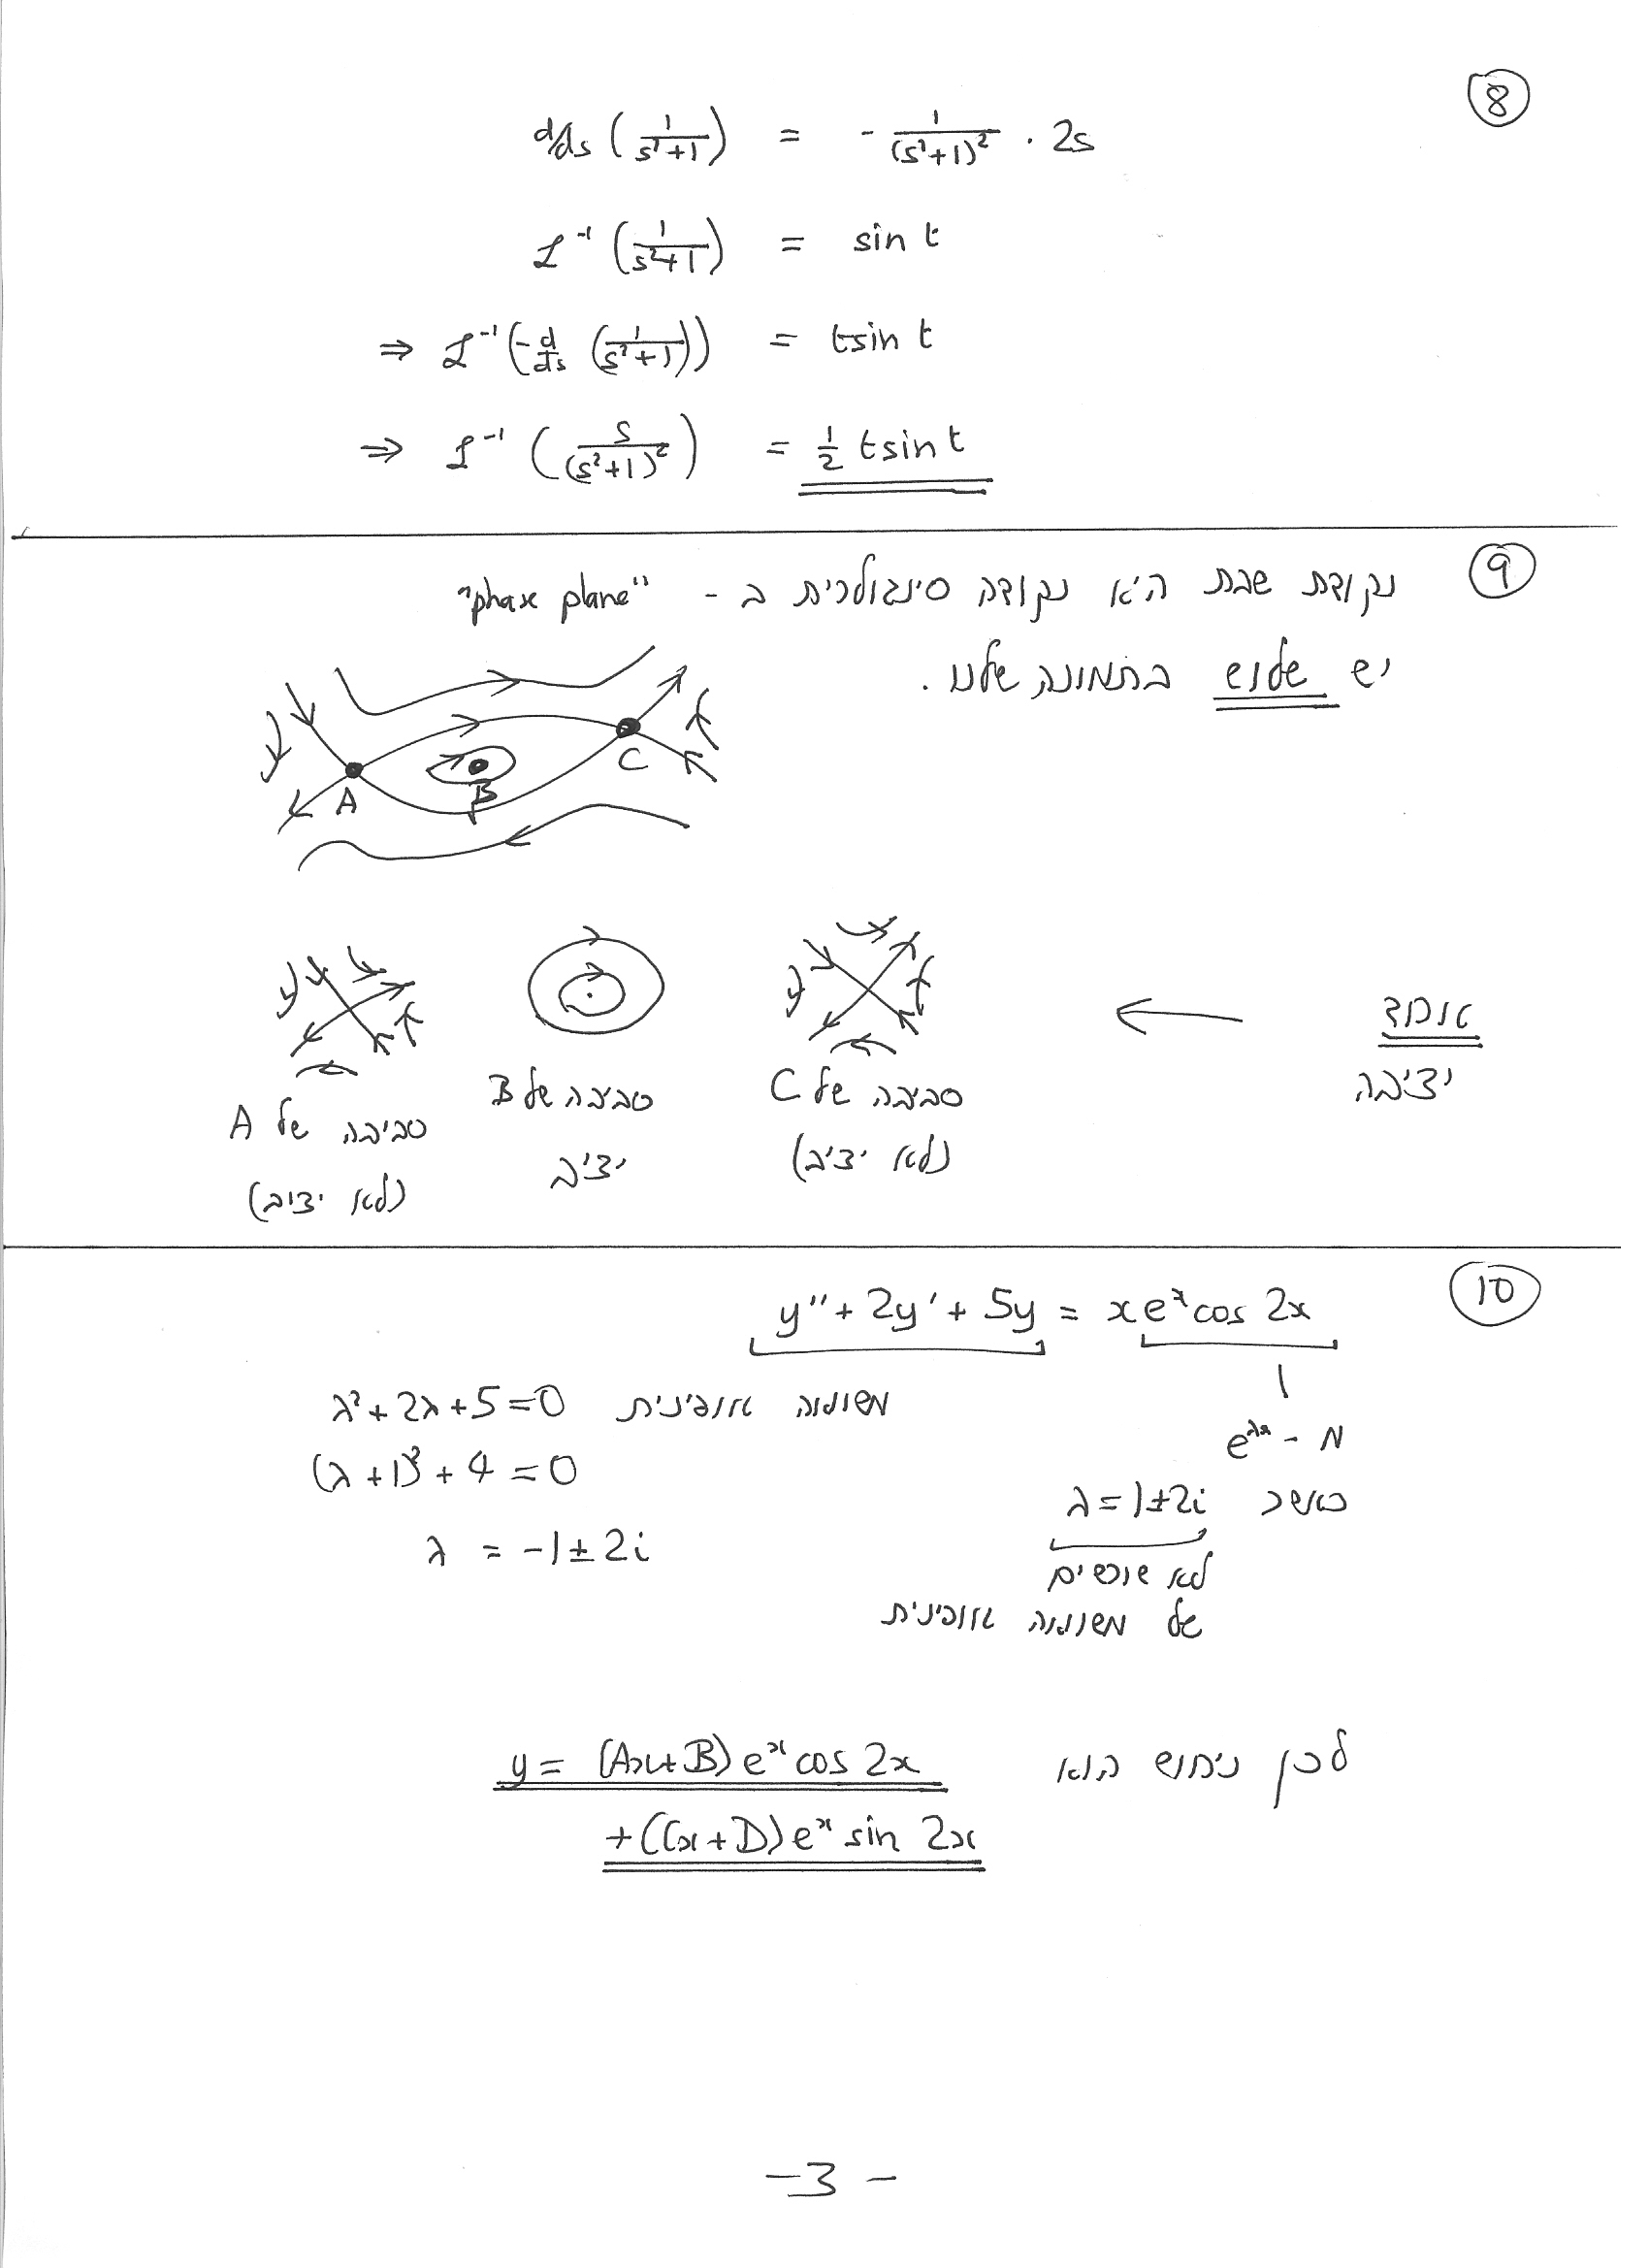 8
d/ds (1/(s²+1)) = - 1/(s²+1)² · 2s
ℒ⁻¹ (1/(s²+1)) = sin t
⇒ ℒ⁻¹ (-d/ds (1/(s²+1))) = t sin t
⇒ ℒ⁻¹ (s/(s²+1)²) = 1/2 t sin t
9
נקודת שבת היא נקודה סינגולרית ב - "phase plane"
יש שלוש בתמונה שלנו.
A
B
C
אחת
יציבה
←
סביבה של C
(לא יציב)
סביבה של B
יציב
סביבה של A
(לא יציב)
10
y'' + 2y' + 5y = x eˣ cos 2x
λ² + 2λ + 5 = 0 משוואה אופינית
(λ + 1)² + 4 = 0
λ = -1 ± 2i
מ - e^λx
כאשר λ = 1 ± 2i
לא שורשים
של משוואה אופינית
לכן ניחוש הוא
y = (Ax + B) eˣ cos 2x
+ (Cx + D) eˣ sin 2x
- 3 -